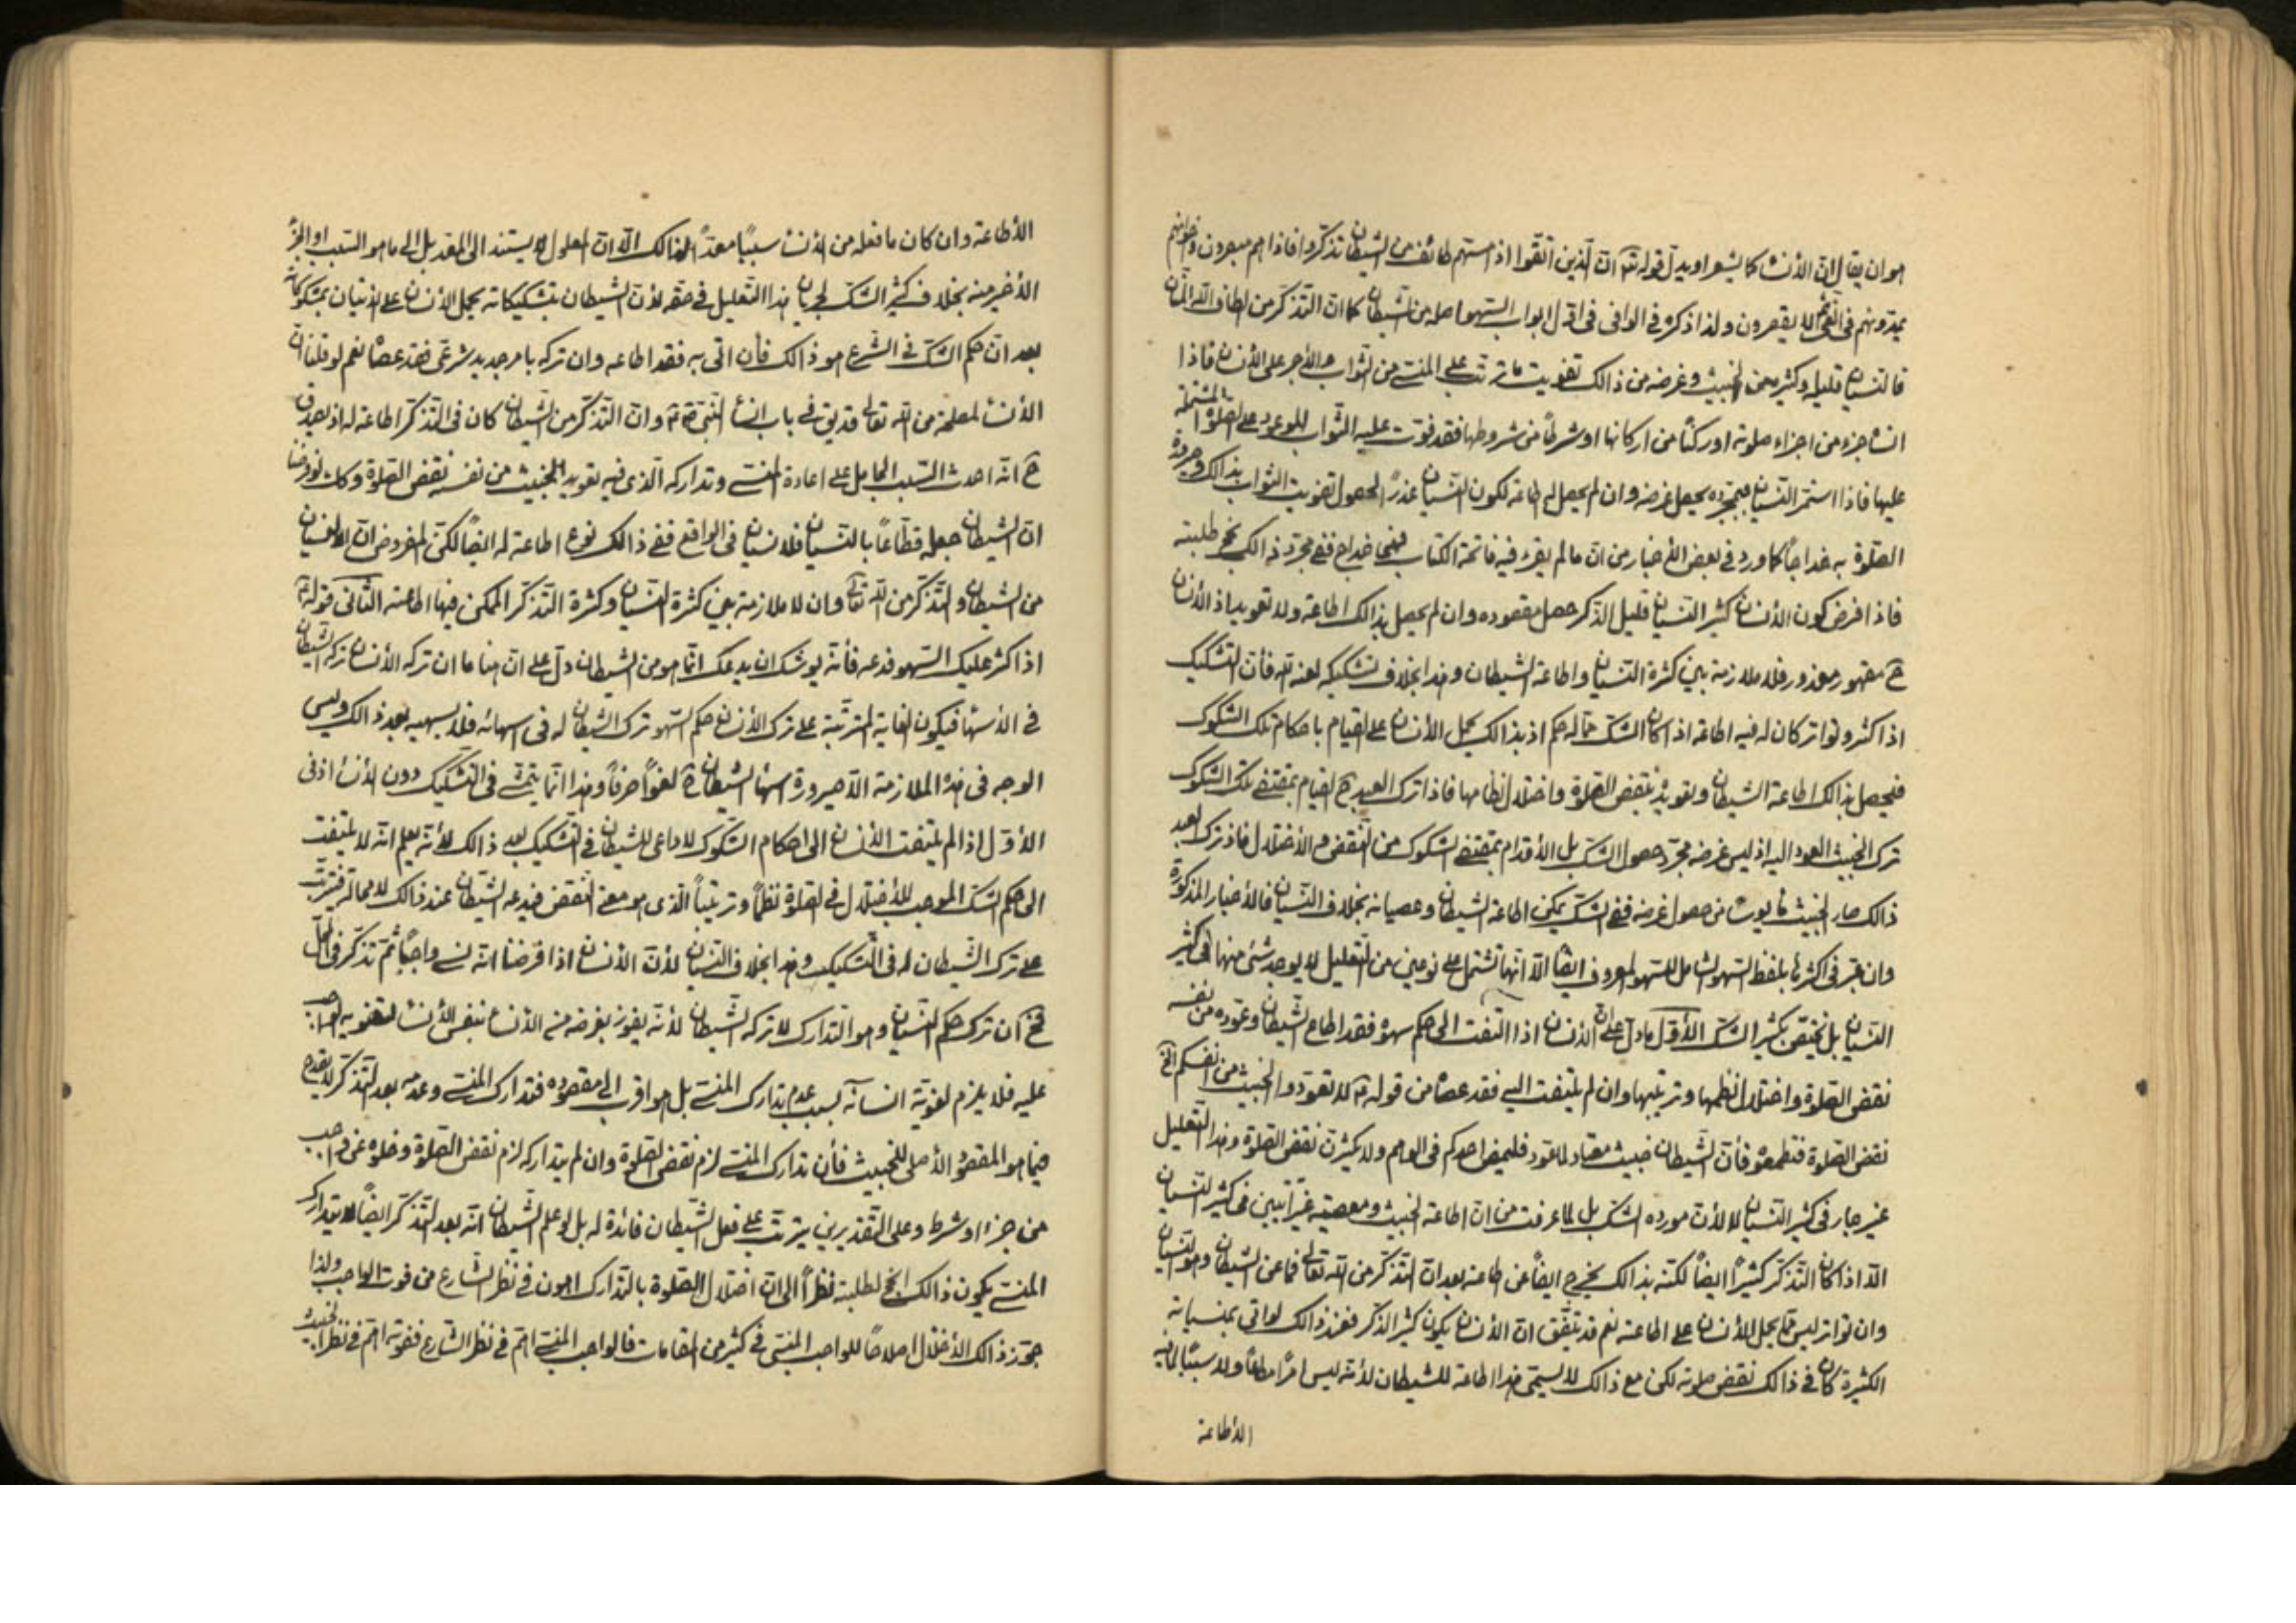 هو ان يقال ان الأنسا كما يشعر او يدل قوله تعٓ ان الذين اتقوا اذا مستهم طائف من الشيطان تذكروا فاذا هم مبصرون واخوانهم
يمدونهم فى الغى ثم لا يقصرون ولذا ذكره فى الوافى فى اول ابواب السهو اصله من الشيطان كما ان التذكر من الطاف الله المنان
فالنسيان قليله وكثيره من الخبيث وغرضه من ذالك تفويت ما ترتب على المنسى من الثواب والأجر على الأنسان فاذا
انسا جزء من اجزاء صلوته او ركنًا من اركانها او شرطًا من شروطها فقد فوت عليه الثواب الموعود على الصلوة المشتملة
عليها فاذا استمر النسيان فبمجرده يحصل غرضه وان لم يحصل له طاعة لكون النسيان عذرًا لحصول تفويت الثواب بذالك وصيرورة
الصلوة به خداجًا كما ورد فى بعض الأخبار من ان ما لم يقرء فيه فاتحة الكتاب فهى خداج ففى مجرد ذالك نجح طلبته
فاذا فرض كون الأنسان كثير النسيان قليل الذكر حصل مقصوده وان لم يحصل بذالك اطاعة ولا تعويد اذ الأنسان
حٓ مقهور معذور فلا ملازمة بين كثرة النسيان واطاعة الشيطان وهذا بخلاف تشكيكه لعنه الله فأن التشكيك
اذا كثر وتواتر كان له فيه اطاعة اذا كان الشك مما له حكم اذ بذالك يحمل الأنسان على القيام باحكام تلك الشكوك
فيحصل بذالك اطاعة الشيطان وتعويده بنقض الصلوة واختلال نظامها فاذا ترك العبد حٓ القيام بمقتضى تلك الشكوك
ترك الخبيث العود اليه اذ ليس غرضه مجرد حصول الشك بل الأقدام بمقتضى الشكوك من النقض والأختلال فاذ ترك العبد
ذالك صار الخبيث مأيوسًا من حصول غرضه ففى الشك يمكن اطاعة الشيطان وعصيانه بخلاف النسيان فالأخبار المذكورة
وان عبر فى اكثرها بلفظ السهو الشامل للسهو المعروف ايضًا الا انها تشتمل على نوعين من التعليل لا يوجد شئ منهما فى كثير
النسيان بل يختص بكثير الشك الأول ما دل على ان الأنسان اذا التفت الى حكم سهوه فقد اطاع الشيطان وعوده من نفسه
نقض الصلوة واختلال نظمها وترتيبها وان لم يلتفت اليه فقد عصاه من قوله عٓ لا تعودوا الخبيث من انفسكم الخ
نقض الصلوة فتطمعوه فأن الشيطان خبيث معتاد لما عود فليمض احدكم فى الوهم ولا يكثرن نقض الصلوة وهذا التعليل
غير جار فى كثير النسيان لا لأن مورده الشك بل لما عرفت من ان اطاعة الخبيث ومعصيته غير آتيين فى كثير النسيان
الا اذا كان التذكر كثيرًا ايضًا لكنه بذالك يخرج ايضًا عن طاعته بعد ان التذكر من الله تعالى فما عن الشيطان وهو النسيان
وان تواتر ليس مما يحمل الأنسان على اطاعته نعم قد يتفق ان الأنسان يكون كثير الذكر فعند ذالك لو اتى بمنسياته
الكثيرة كان فى ذالك نقض صلوته لكن مع ذالك لا يسمى هذا اطاعة للشيطان لأنه ليس امرًا مطاعًا ولا سببًا لما فيه
الأطاعة
الأطاعة وان كان ما فعله من الأنسا سببًا معدًا لذالك الا ان المعلول لا يستند الى المعد بل الى ما هو السبب او الجزء
الأخير منه بخلاف كثير الشك لجريان هذا التعليل فى حقه لأن الشيطان بتشكيكاته يحمل الأنسان على الأتيان بمشكوكاته
بعد ان حكم الشك فى الشرع هو ذالك فأن اتى به فقد اطاعه وان تركه بامر جديد شرعى فقد عصاه نعم لو قلنا ان
الأنسا لمصلحة من الله تعالى قد يق فى باب انسأ النبى صٓ وان التذكر من الشيطان كان فى التذكر اطاعة له اذ يصدق
حٓ انه احدث السبب الحامل على اعادة المنسى وتداركه الذى فيه تعويد الخبيث من نفسه نقض الصلوة وكك لو فرضنا
ان الشيطان جعله قطاعًا بالنسيان فلا نسيان فى الواقع ففى ذالك نوع اطاعة له ايضًا لكن المفروض ان النسيان
من الشيطان والتذكر من الله تعالى وان لا ملازمة بين كثرة النسيان وكثرة التذكر الممكن فيها اطاعته الثانى قوله عٓ
اذا كثر عليك السهو فدعه فأنه يوشك ان يدعك انما هو من الشيطان دل على ان هنا ما ان تركه الأنسان تركه الشيطان
فى الأسهأ فيكون الغاية المترتبة على ترك الأنسان حكم السهو ترك الشيطان له فى اسهائه فلا يسهيه بعد ذالك وليس
الوجه فى هذه الملازمة الا صيرورة اسهأ الشيطان حٓ لغوًا صرفًا وهذا انما يتم فى التشكيك دون الأنسأ اذ فى
الأول اذا لم يلتفت الأنسان الى احكام الشكوك لا داعى للشيطان فى التشكيك بعد ذالك لأنه يعلم انه لا يلتفت
الى حكم الشك الموجب للأختلال فى الصلوة نظمًا وترتيبًا الذى هو معنى النقض فيدعه الشيطان عند ذالك لا محالة فيترتب
على تركه ترك الشيطان له فى التشكيك وهذا بخلاف النسيان لأن الأنسان اذا فرضنا انه نسى واجبًا ثم تذكر فى المحل
فحٓ ان ترك حكم النسيان وهو التدارك لا تركه الشيطان لأنه يفوز بغرضه من الأنسان بنفس الأنسا لتفويته الواجب
عليه فلا يلزم لغوية انسائه بسبب عدم تدارك المنسى بل هو اقرب الى مقصوده فتدارك المنسى وعدمه بعد التذكر لا يقدح
فيما هو المقصود الأصلى للخبيث فأن تدارك المنسى لزم نقض الصلوة وان لم يتداركه لزم نقض الصلوة وخلوه عن واجب
من جزء او شرط وعلى التقديرين يترتب على فعل الشيطان فائدة له بل لو علم الشيطان انه بعد التذكر ايضًا لا يتدارك
المنسى يكون ذالك انجح لطلبته نظرًا الى ان اختلال الصلوة بالتدارك اهون فى نظر الشارع من فوت الواجب ولذا
جوز ذالك الأختلال اصلاحًا للواجب المنسى فى كثير من المقامات فالواجب المنسى اهم فى نظر الشارع ففوته اهم فى نظر الخبيث